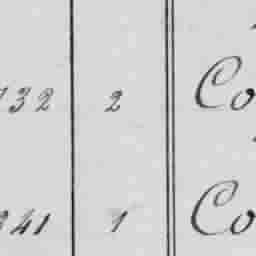 732 2 Co
341 1 Co